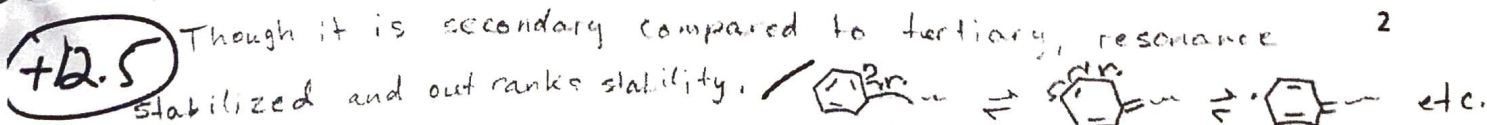 Though it is secondary compared to tertiary, resonance 2
+12.5
stabilized and out ranks stability. etc.